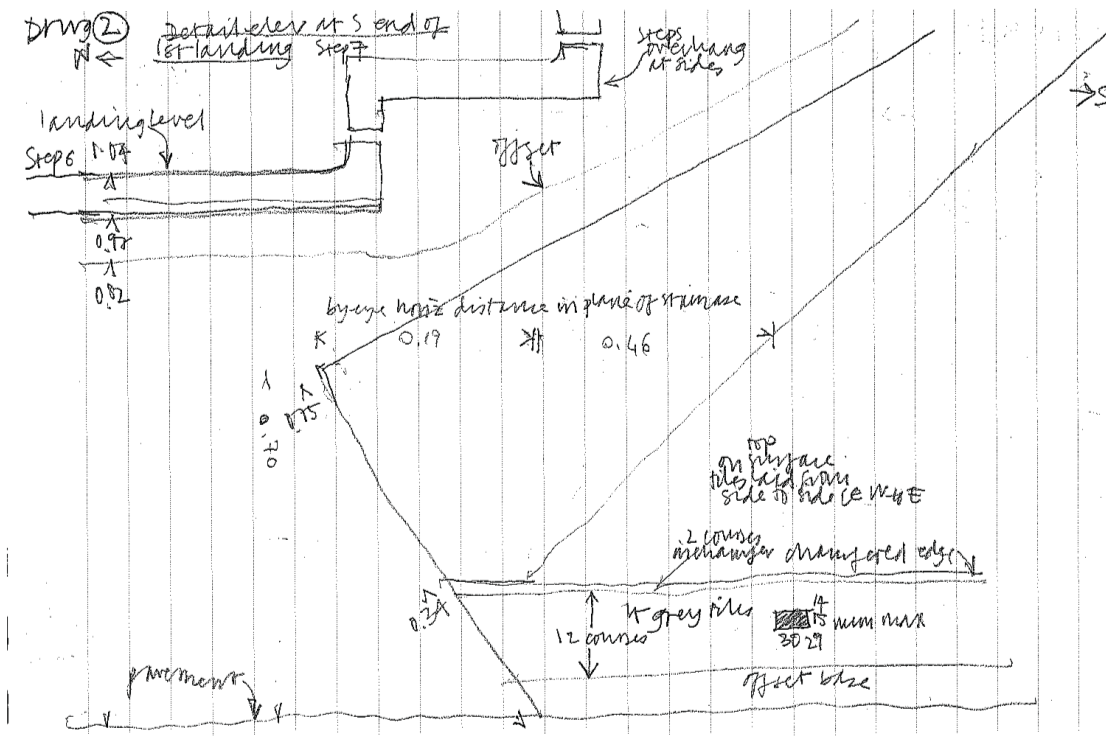 Drwg 2 Detail elev at S end of
1st landing Step 7
N ←
steps
overhang
at sides
→ S
landing level
Step 6 1.04
offset
0.98
0.82
by eye horiz distance in plane of staircase
0.19 0.46
0.75
0.70
top
on surface
tiles laid from
side to side ie W to E
2 courses
in chamfer chamfered edge
0.27
lt grey tiles
14
15 mum max
30 29
12 courses
pavement
offset base